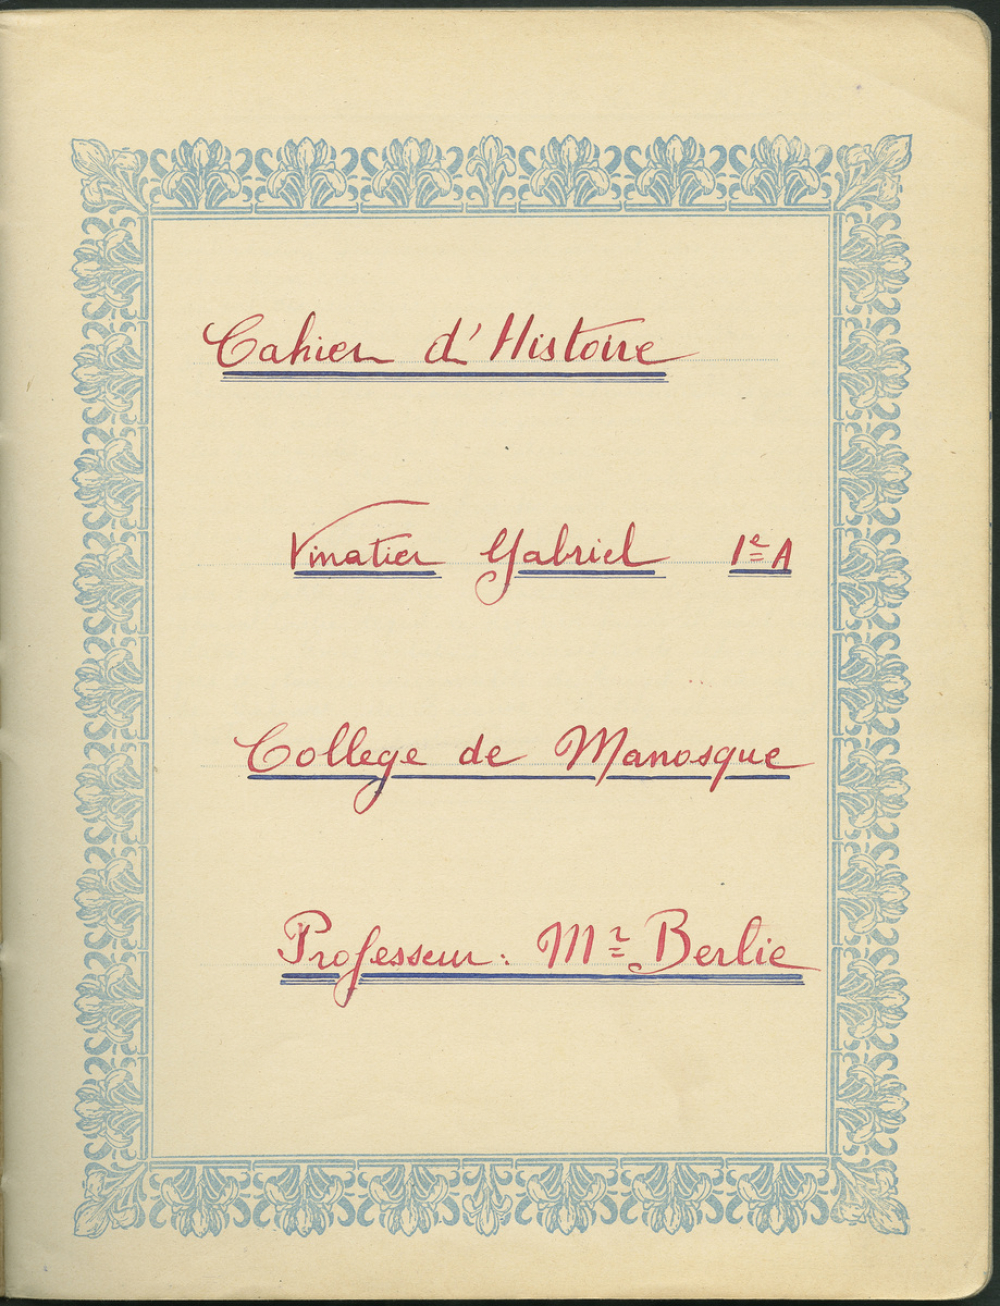 Cahier d'Histoire
Vinatier Gabriel 1e A
College de Manosque
Professeur: Mr Berlie